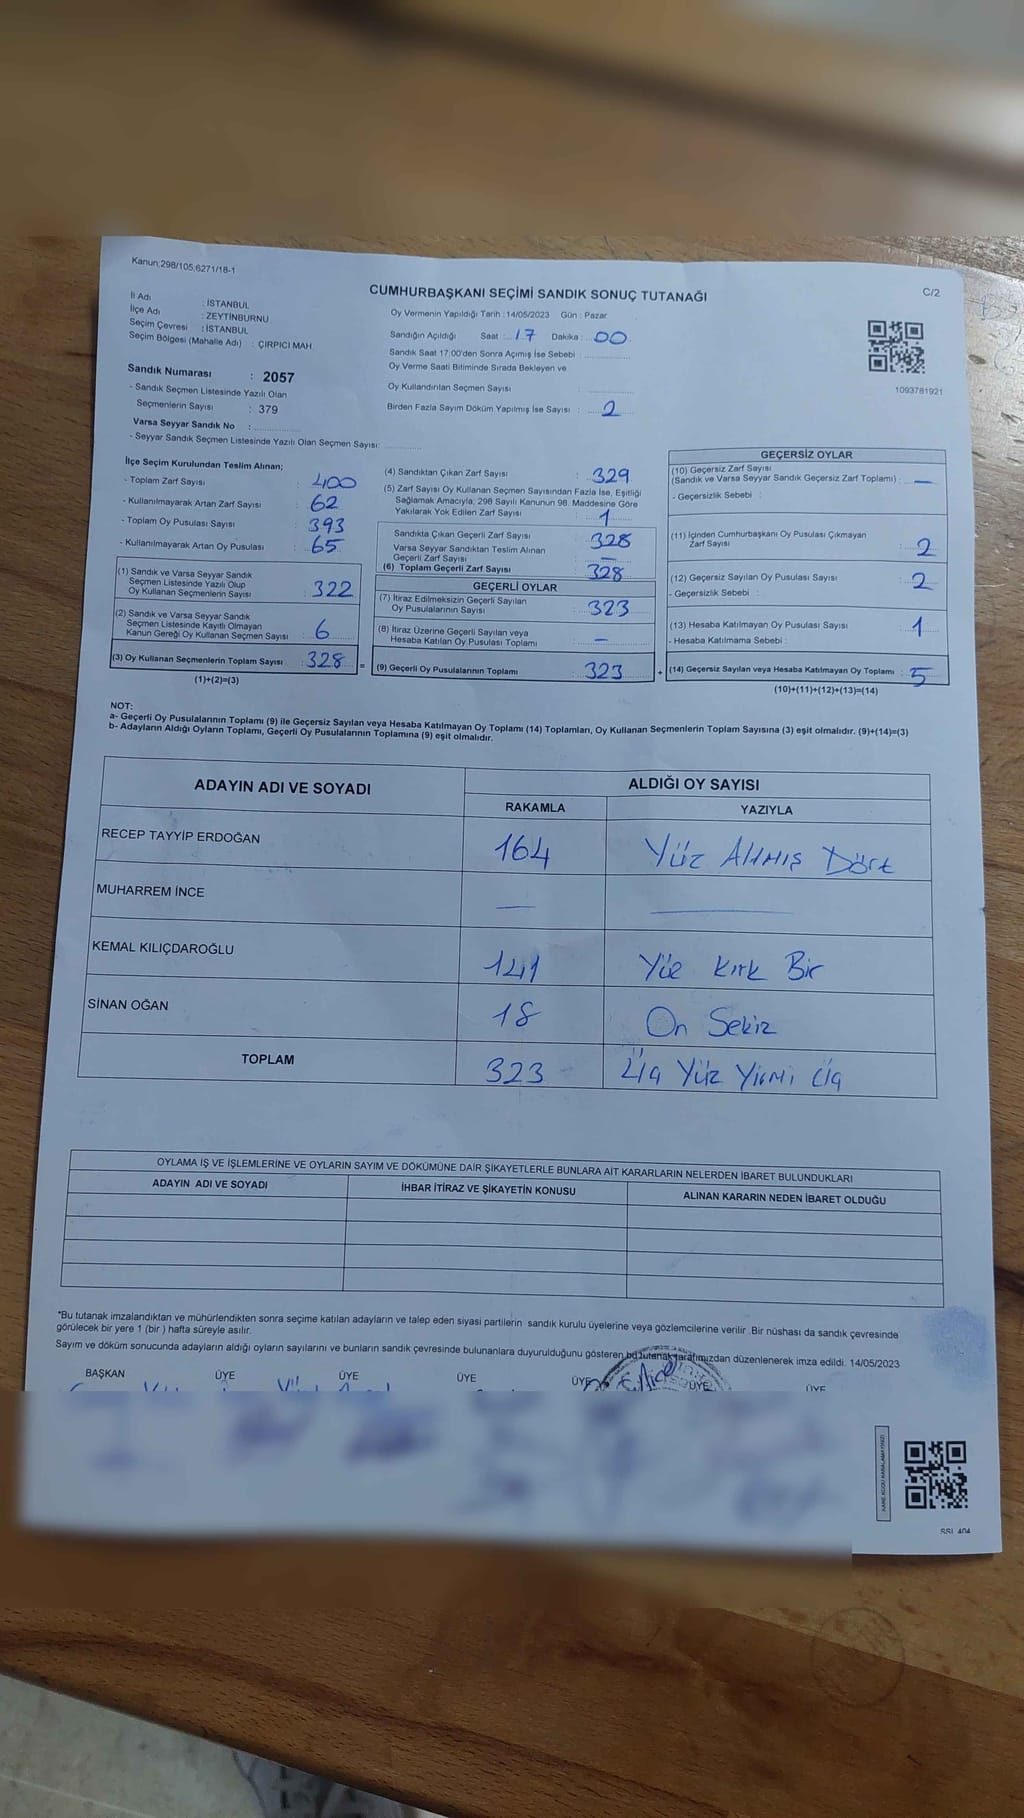 Kanun;298/105;6271/18-1
C/2
CUMHURBAŞKANI SEÇİMİ SANDIK SONUÇ TUTANAĞI
İl Adı : İSTANBUL
İlçe Adı : ZEYTİNBURNU
Seçim Çevresi : İSTANBUL
Seçim Bölgesi (Mahalle Adı) : ÇIRPICI MAH.
Sandık Numarası : 2057
- Sandık Seçmen Listesinde Yazılı Olan
Seçmenlerin Sayısı : 379
Varsa Seyyar Sandık No :
- Seyyar Sandık Seçmen Listesinde Yazılı Olan Seçmen Sayısı:
Oy Vermenin Yapıldığı Tarih : 14/05/2023 Gün : Pazar
Sandığın Açıldığı Saat : 17 Dakika : 00
Sandık Saat 17:00'den Sonra Açımış İse Sebebi :
Oy Verme Saati Bitiminde Sırada Bekleyen ve
Oy Kullandırılan Seçmen Sayısı :
Birden Fazla Sayım Döküm Yapılmış İse Sayısı : 2
1093781921
İlçe Seçim Kurulundan Teslim Alınan;
- Toplam Zarf Sayısı : 400
- Kullanılmayarak Artan Zarf Sayısı : 62
- Toplam Oy Pusulası Sayısı : 393
- Kullanılmayarak Artan Oy Pusulası : 65
(1) Sandık ve Varsa Seyyar Sandık
Seçmen Listesinde Yazılı Olup
Oy Kullanan Seçmenlerin Sayısı : 322
(2) Sandık ve Varsa Seyyar Sandık
Seçmen Listesinde Kayıtlı Olmayan
Kanun Gereği Oy Kullanan Seçmen Sayısı : 6
(3) Oy Kullanan Seçmenlerin Toplam Sayısı : 328
(1)+(2)=(3)
=
(4) Sandıktan Çıkan Zarf Sayısı : 329
(5) Zarf Sayısı Oy Kullanan Seçmen Sayısından Fazla İse, Eşitliği
Sağlamak Amacıyla, 298 Sayılı Kanunun 98. Maddesine Göre
Yakılarak Yok Edilen Zarf Sayısı : 1
Sandıkta Çıkan Geçerli Zarf Sayısı : 328
Varsa Seyyar Sandıktan Teslim Alınan
Geçerli Zarf Sayısı : —
(6) Toplam Geçerli Zarf Sayısı : 328
GEÇERLİ OYLAR
(7) İtiraz Edilmeksizin Geçerli Sayılan
Oy Pusulalarının Sayısı : 323
(8) İtiraz Üzerine Geçerli Sayılan veya
Hesaba Katılan Oy Pusulası Toplamı : —
(9) Geçerli Oy Pusulalarının Toplamı : 323
+
GEÇERSİZ OYLAR
(10) Geçersiz Zarf Sayısı
(Sandık ve Varsa Seyyar Sandık Geçersiz Zarf Toplamı) : —
- Geçersizlik Sebebi :
(11) İçinden Cumhurbaşkanı Oy Pusulası Çıkmayan
Zarf Sayısı : 2
(12) Geçersiz Sayılan Oy Pusulası Sayısı : 2
- Geçersizlik Sebebi :
(13) Hesaba Katılmayan Oy Pusulası Sayısı : 1
- Hesaba Katılmama Sebebi :
(14) Geçersiz Sayılan veya Hesaba Katılmayan Oy Toplamı : 5
(10)+(11)+(12)+(13)=(14)
NOT:
a- Geçerli Oy Pusulalarının Toplamı (9) ile Geçersiz Sayılan veya Hesaba Katılmayan Oy Toplamı (14) Toplamları, Oy Kullanan Seçmenlerin Toplam Sayısına (3) eşit olmalıdır. (9)+(14)=(3)
b- Adayların Aldığı Oyların Toplamı, Geçerli Oy Pusulalarının Toplamına (9) eşit olmalıdır.
ADAYIN ADI VE SOYADI ALDIĞI OY SAYISI
RAKAMLA YAZIYLA
RECEP TAYYİP ERDOĞAN 164 Yüz Altmış Dört
MUHARREM İNCE — —
KEMAL KILIÇDAROĞLU 141 Yüz Kırk Bir
SİNAN OĞAN 18 On Sekiz
TOPLAM 323 Üç Yüz Yirmi Üç
OYLAMA İŞ VE İŞLEMLERİNE VE OYLARIN SAYIM VE DÖKÜMÜNE DAİR ŞİKAYETLERLE BUNLARA AİT KARARLARIN NELERDEN İBARET BULUNDUKLARI
ADAYIN ADI VE SOYADI İHBAR İTİRAZ VE ŞİKAYETİN KONUSU ALINAN KARARIN NEDEN İBARET OLDUĞU
*Bu tutanak imzalandıktan ve mühürlendikten sonra seçime katılan adayların ve talep eden siyasi partilerin sandık kurulu üyelerine veya gözlemcilerine verilir .Bir nüshası da sandık çevresinde
görülecek bir yere 1 (bir ) hafta süreyle asılır.
Sayım ve döküm sonucunda adayların aldığı oyların sayılarını ve bunların sandık çevresinde bulunanlara duyurulduğunu gösteren bu tutanak tarafımızdan düzenlenerek imza edildi. 14/05/2023
BAŞKAN ÜYE ÜYE ÜYE ÜYE ÜYE ÜYE